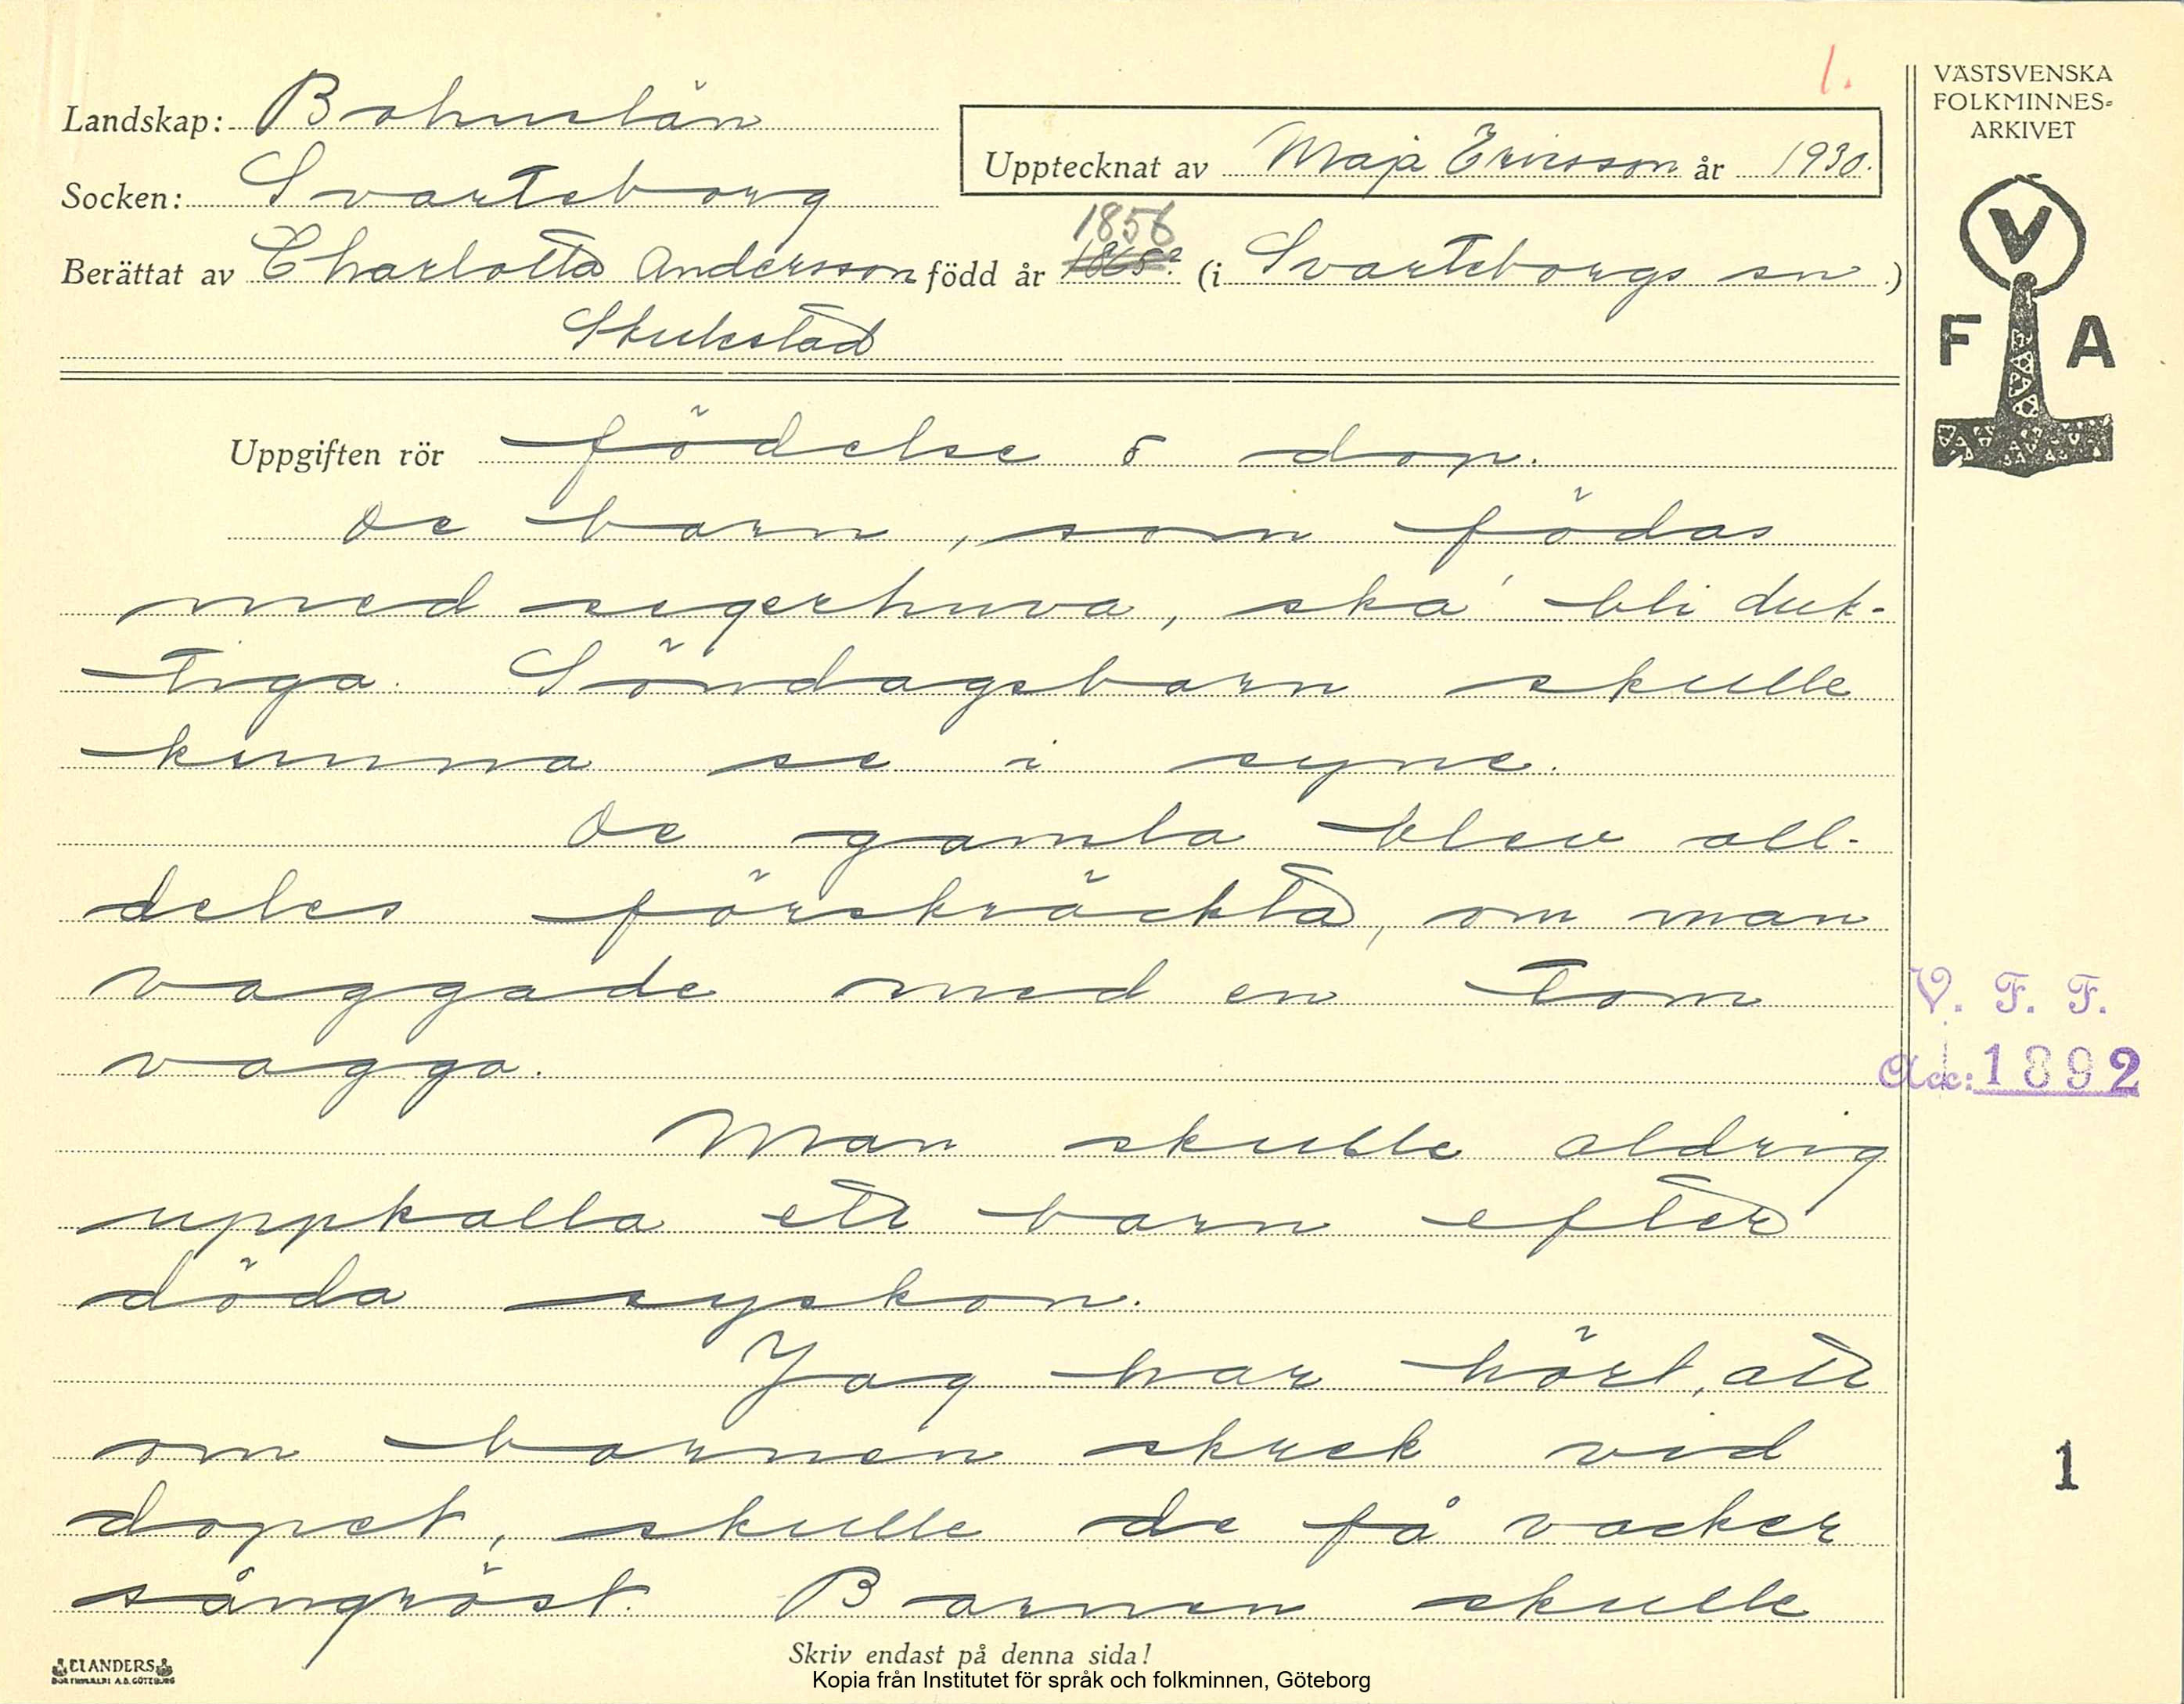 1.
VÄSTSVENSKA
FOLKMINNES-
ARKIVET
Landskap: Bohuslän
Upptecknat av Maja Ericsson år 1930.
Socken: Svarteborg
1856
Berättat av Charlotta Andersson född år 1865? (i Svarteborgs sn.)
Skulestad
V
F A
Uppgiften rör födelse o dop.
De barn, som födas
med segerhuva, ska' bli duk-
tiga. Söndagsbarn skulle
kunna se i syne.
De gamla blev all-
deles förskräckta, om man
vaggade med en tom
vagga.
V. F. F.
Acc: 1892
Man skulle aldrig
uppkalla ett barn efter
döda syskon.
Jag har hört, att
om barnen skrek vid
1
dopet, skulle de få vacker
sångröst. Barnen skulle
Skriv endast på denna sida!
ELANDERS
Kopia från Institutet för språk och folkminnen, Göteborg